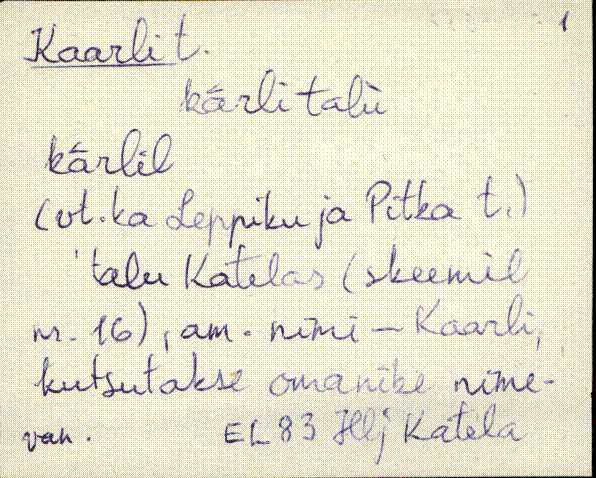 1
Kaarli t.
kārli talù
kārlil
(vt. ka Leppiku ja Pitka t.)
talu Katelas (skeemil
nr. 16), am. nimi — Kaarli,
kutsutakse omanike nime-
van. EL 83 Hlj Katela